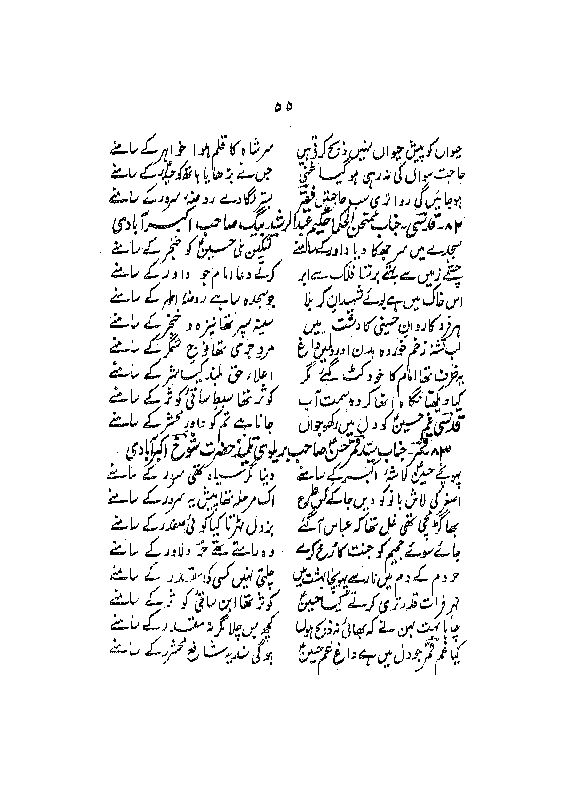 ۵۵
حیواں کو پیش حیواں نہیں ذبح کرتے ہیں سر شاہ کا قلم ہوا خواہر کے سامنے
حاجت سوال کی نہ رہی ہو گیا غنی جس نے بڑھایا ہاتھ کے سامنے
ہو جائیں گی روا تری سب حاجتیں فقیر بستر لگا دے روضۂ سرور کے سامنے
۸۲۔ قدسی۔ جناب حکیم عبد الرشید بیگ صاحب اکبرآبادی
سجدے میں سر جھکا دیا داور کے سامنے حسینؑ کو خنجر کے سامنے
زمیں سے برستا فلک سے ابر کرتے دعا امام جو داور کے سامنے
اس خاک میں ہے بوئے شہیدان کربلا جو سجدہ سا ہے روضۂ اطہر کے سامنے
ہر فرد کاروان حسینی کا دشت میں سینہ سپر تھا نیزہ و خنجر کے سامنے
لب تشنہ زخم خوردہ بدن اور دل میں داغ مرد جری تھا فوج ستمگر کے سامنے
ہر حرف تھا امام کا خود کٹ گئے مگر اعلاء حق بلند کیا شر کے سامنے
کیا دیکھتا نگاہ اٹھا کر وہ سمت آب کوثر تھا سبط ساقی کوثر کے سامنے
قدسی غم حسینؑ کو دل میں رکھو جواں جانا ہے تم کو داور محشر کے سامنے
۸۳۔ قمر۔ جناب سید قمر حسن صاحب بریلوی تلمیذ حضرت شوخ اکبرآبادی
پہونچے حسینؑ لاشۂ اکبر کے سامنے دنیا مگر سیاہ تھی سرور کے سامنے
اصغر کی لاش بانو کو دیں جا کے کس طرح اک مرحلہ تھا پیش یہ سرور کے سامنے
بھاگڑ مچی تھی غل تھا کہ عباس آگئے بزدل ٹھہرتا کیا کوئی صفدر کے سامنے
جاتے سوئے جحیم کو جنت کا رخ کرے وہ راستے تھے حر دلاور کے سامنے
حر دم کے دم میں نار سے پہونچا بہشت میں چلتی نہیں کسی کی مقدر کے سامنے
نہر فرات قدر تری کرتے کیا حسینؑ کوثر تھا ابن ساقی کوثر کے سامنے
چاہا بہت بہن نے کہ بھائی نہ ذبح ہوں کچھ بس چلا مگر نہ مقدر کے سامنے
کیا غم قمر جو دل میں ہے داغ غم حسینؑ ہوگی شافع محشر کے سامنے